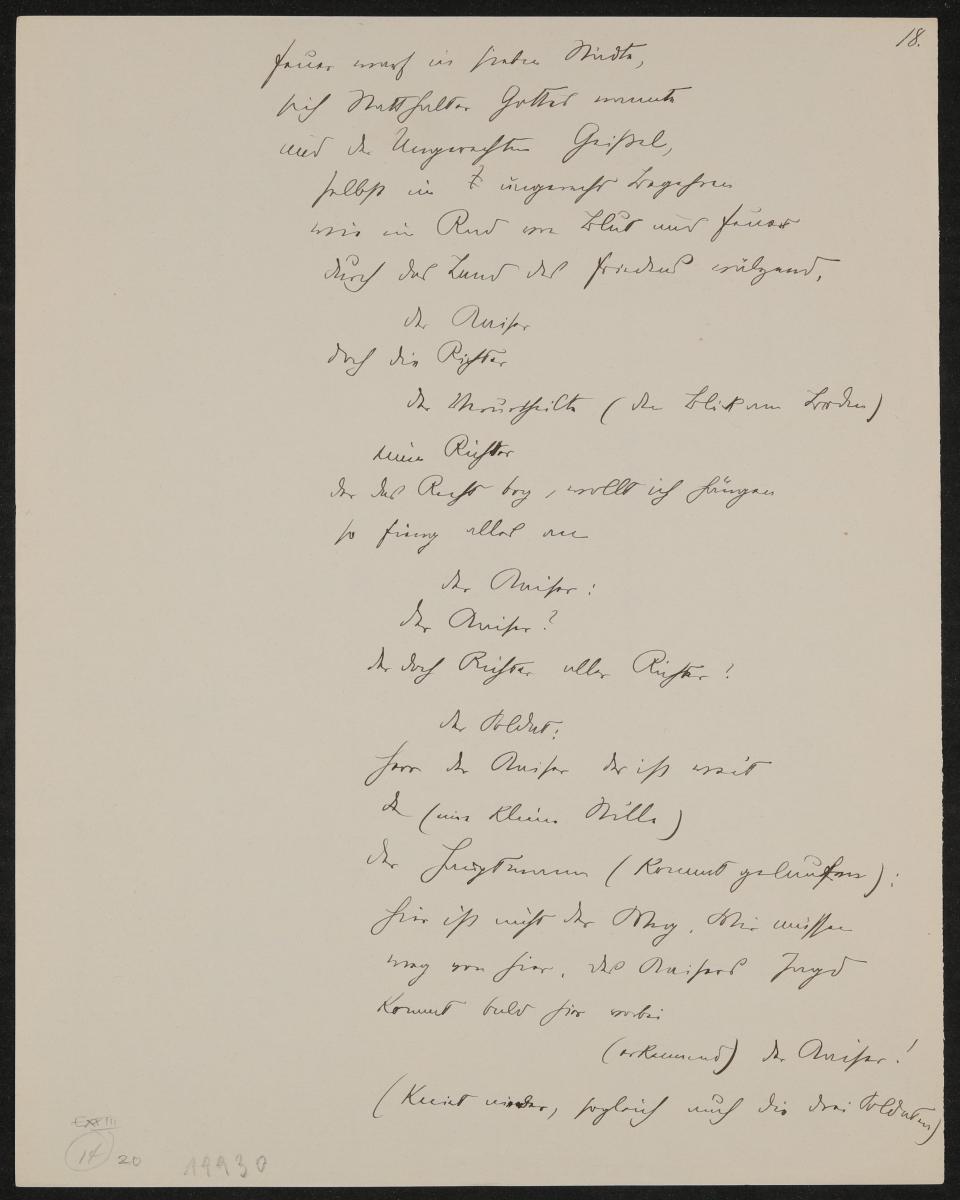 18.
Feuer warf in sieben Städte,
sich Statthalter Gottes nannte
und der Ungerechten Geißel,
selbst in ungerecht Begehren
wie ein Rad von Blut und Feuer
durch das Land des Friedens wälzend,
der Kaiser
doch die Richter
der Verurtheilte (den Blick am Boden)
einen Richter
der das Recht bog, wollt ich hängen
so fieng alles an
der Kaiser:
der Kaiser?
der doch Richter aller Richter!
der Soldat:
Herr der Kaiser der ist weit
(eine kleine Stille)
der Hauptmann (kommt gelaufen):
hier ist nicht der Weg. Wir müssen
weg von hier, des Kaisers Jagd
kommt bald hier vorbei
(erkennend) der Kaiser!
(kniet nieder, sogleich auch die drei Soldaten)
EXXIII
14 20 19930